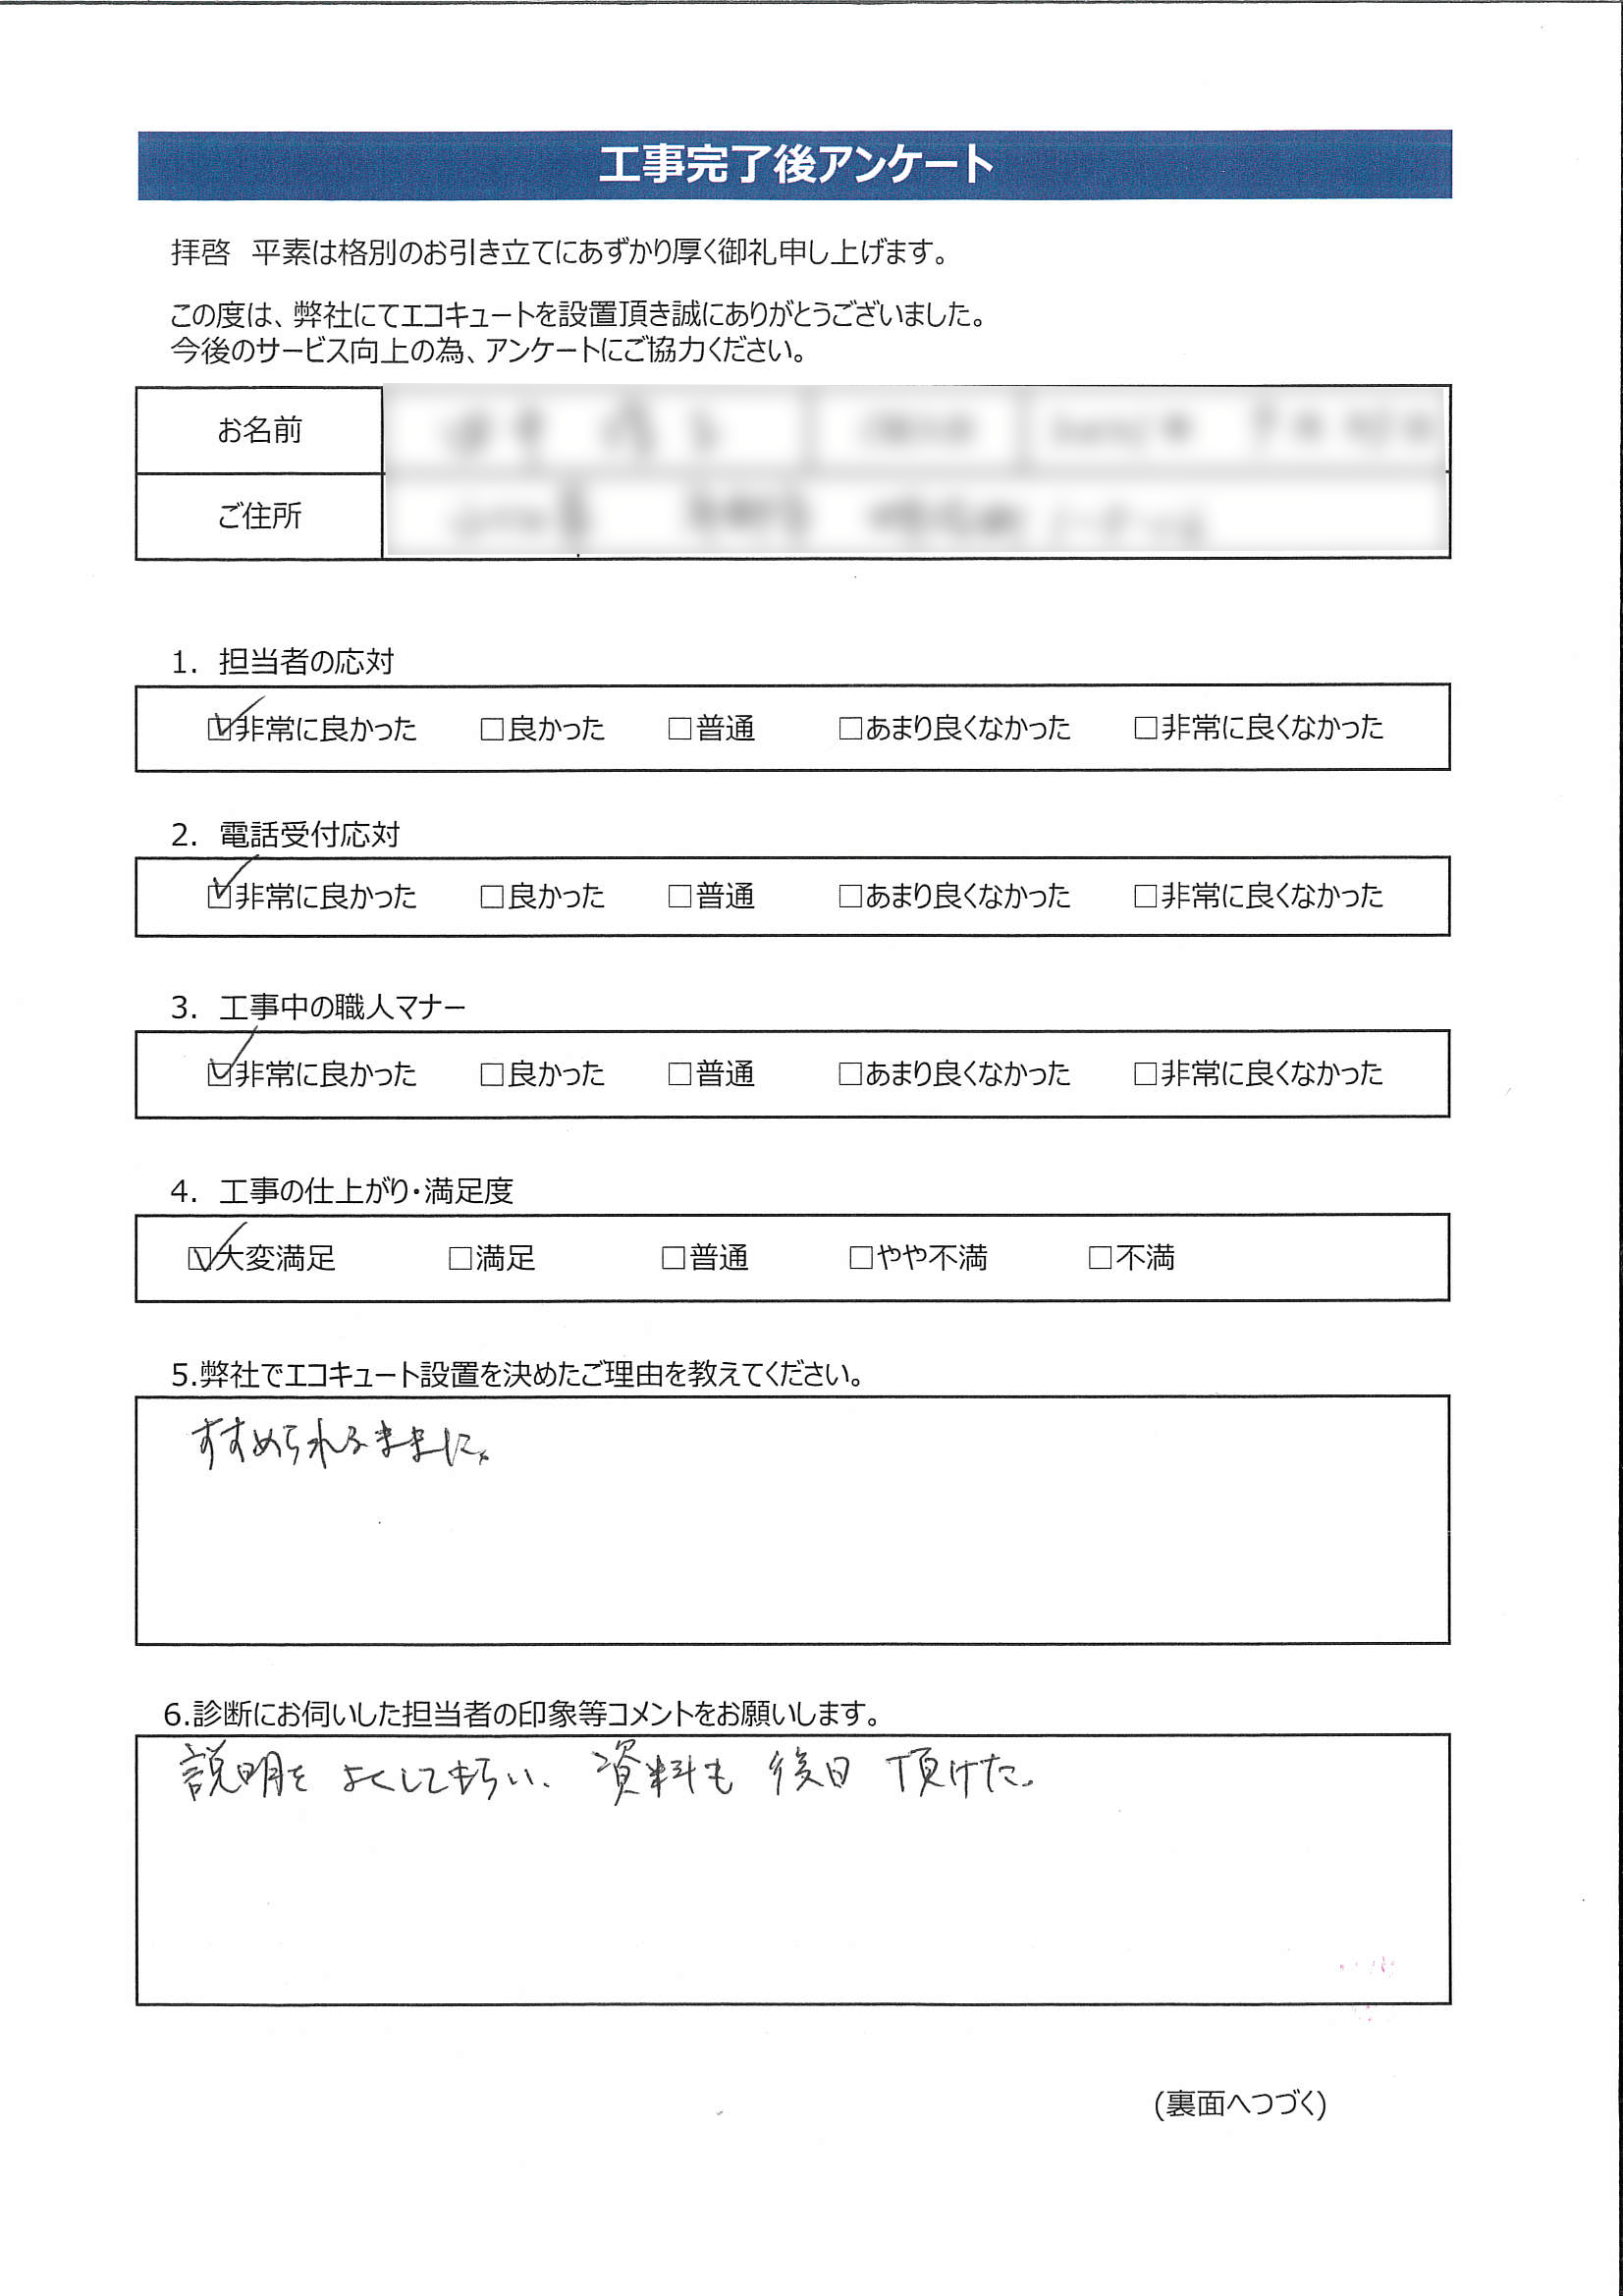 工事完了後アンケート
拝啓　平素は格別のお引き立てにあずかり厚く御礼申し上げます。
この度は、弊社にてエコキュートを設置頂き誠にありがとうございました。
今後のサービス向上の為、アンケートにご協力ください。
お名前
ご住所
1. 担当者の応対
☑非常に良かった □良かった □普通 □あまり良くなかった □非常に良くなかった
2. 電話受付応対
☑非常に良かった □良かった □普通 □あまり良くなかった □非常に良くなかった
3. 工事中の職人マナー
☑非常に良かった □良かった □普通 □あまり良くなかった □非常に良くなかった
4. 工事の仕上がり・満足度
☑大変満足 □満足 □普通 □やや不満 □不満
5.弊社でエコキュート設置を決めたご理由を教えてください。
すすめられるままに。
6.診断にお伺いした担当者の印象等コメントをお願いします。
説明を よくしてもらい、 資料も 後日 頂けた。
(裏面へつづく)